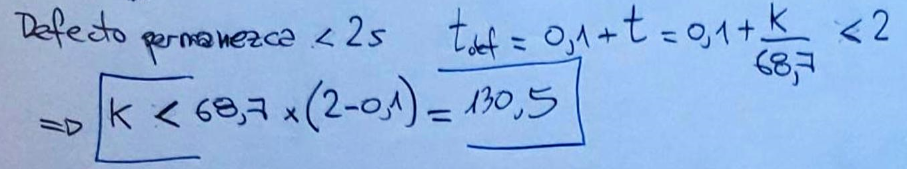 Defecto permanezca < 2s t_def = 0,1 + t = 0,1 + K/68,7 < 2
=> K < 68,7 x (2-0,1) = 130,5